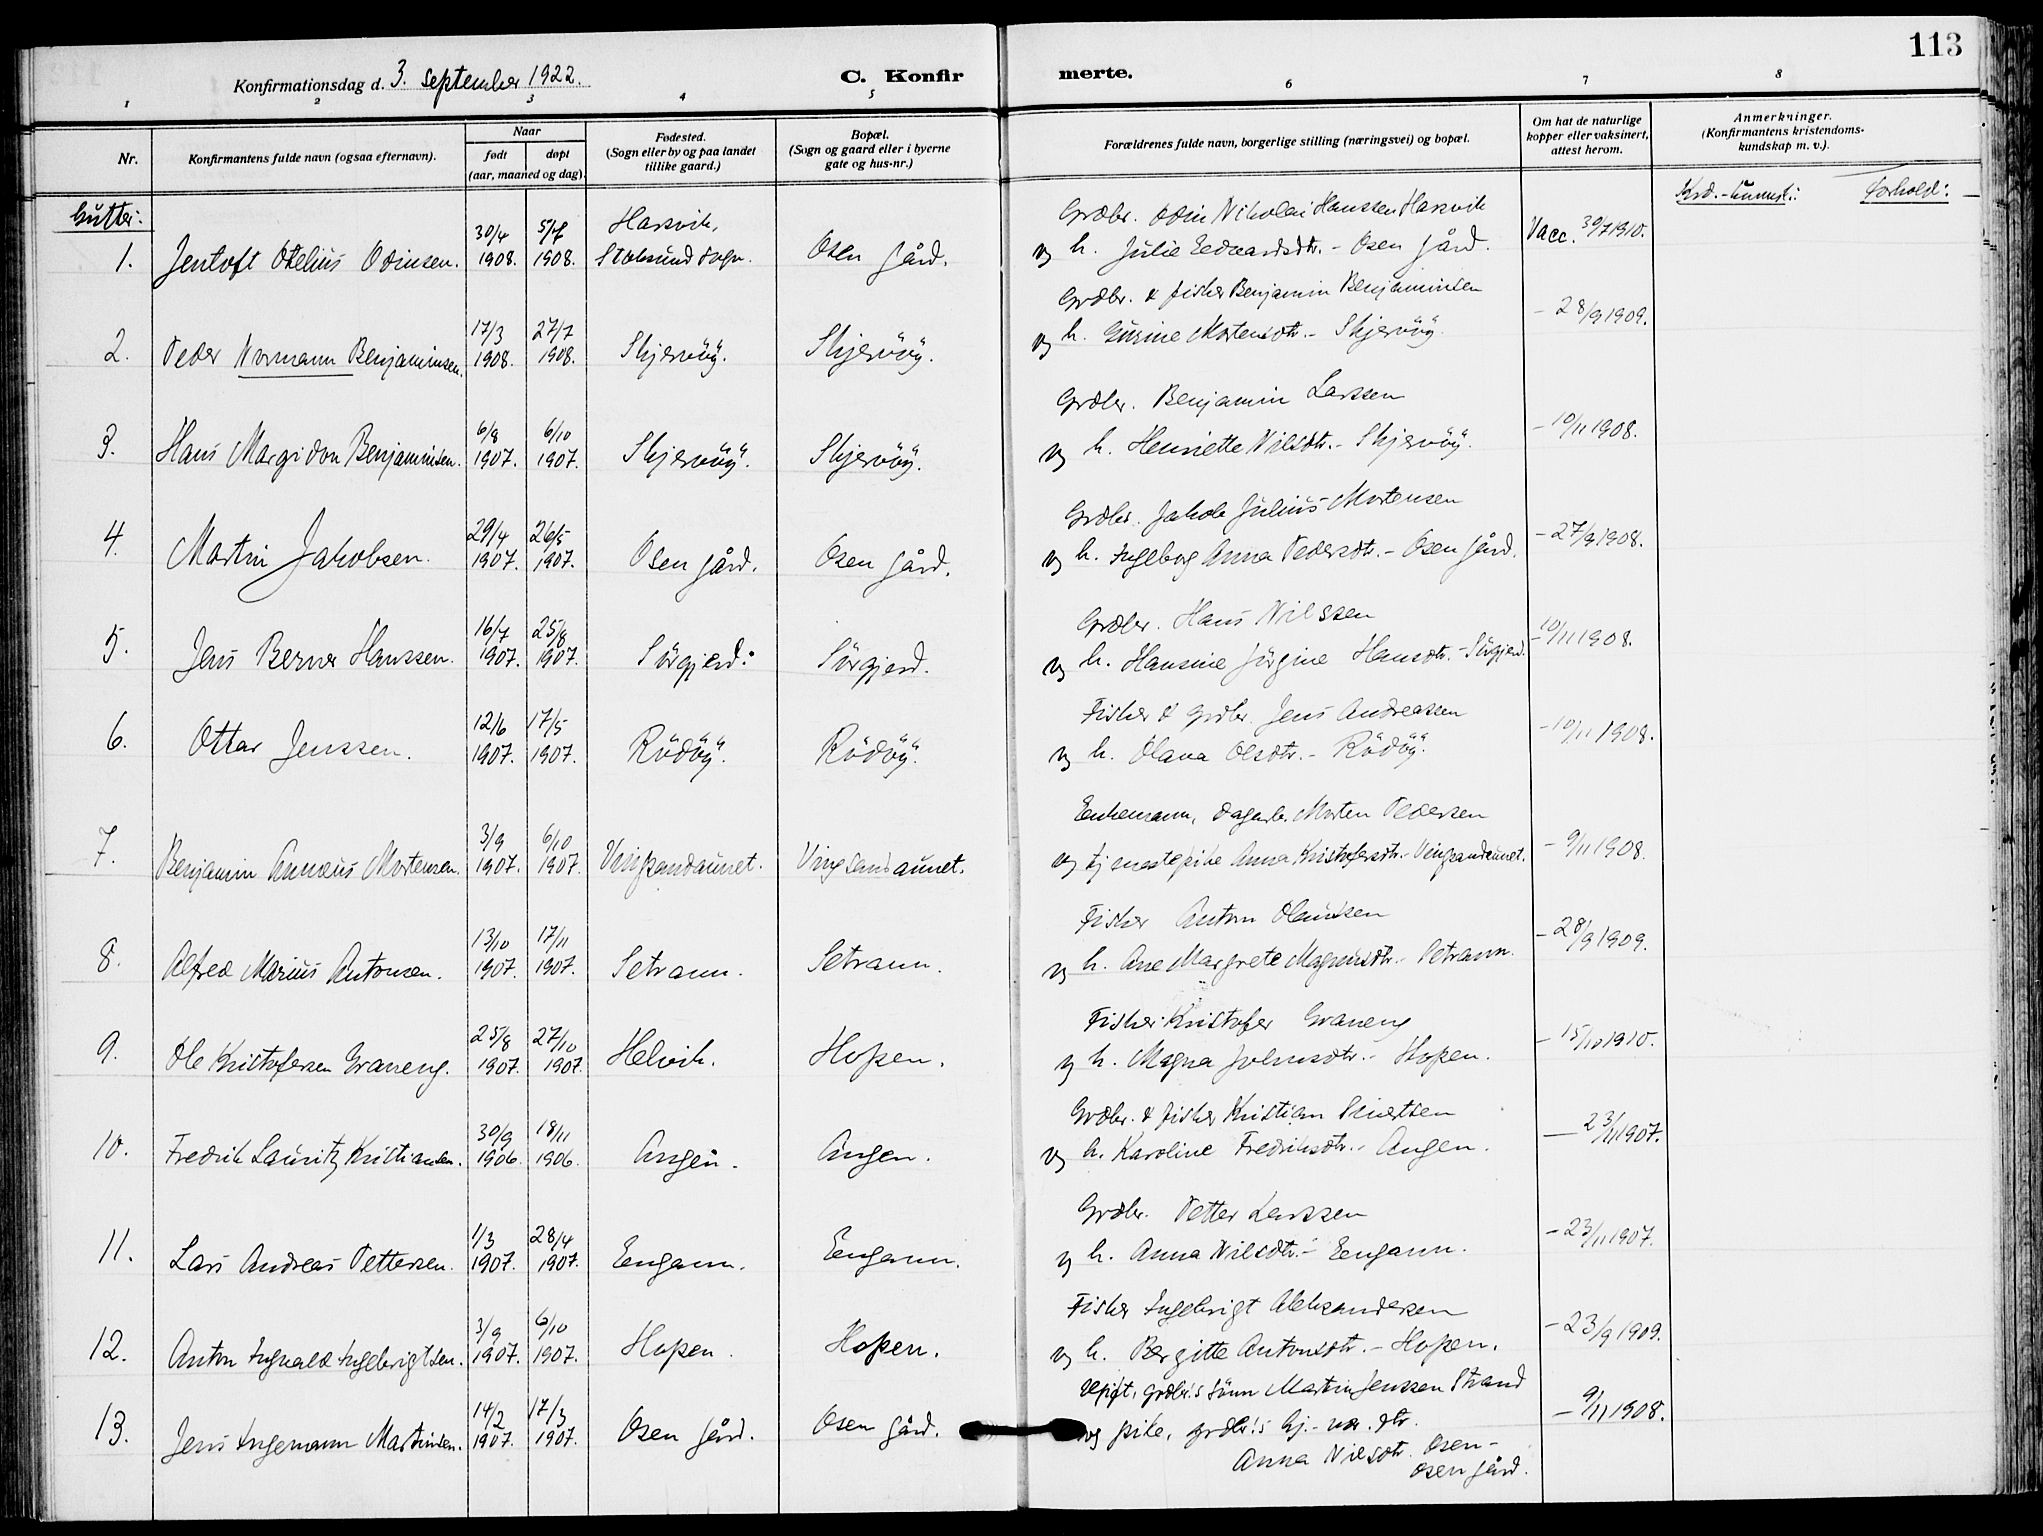 113
Konfirmationsdag d. 3. september 1922.
C. Konfirmerte.
1 2 3 4 5 6 7 8
Nr.
Konfirmantens fulde navn (ogsaa efternavn).
Naar
født
døpt
(aar, maaned og dag).
Fødested.
(Sogn eller by og paa landet
tillike gaard.)
Bopæl.
(Sogn og gaard eller i byerne
gate og hus-nr.)
Forældrenes fulde navn, borgerlige stilling (næringsvei) og bopæl.
Om hat de naturlige
kopper eller vaksinert,
attest herom.
Anmerkninger.
(Konfirmantens kristendoms-
kundskap m. v.).
Gutter:
Forhold:
1. Jentoft Otelius Odinsen. 30/4 1908. 1908. Hasvik, Stoksund sogn. Osen gård.
Grdbr. Odin Nikolai Hanssen Hasvik
og h. Julie Eedvardsdtr. - Osen gård. Vacc. 30/7 1910.
2. Peder Normann Benjaminsen. 17/3 1908. 27/7 1908. Skjervöÿ. Skjervöÿ.
Grdbr. & fisker Benjamin Benjaminsen
og h. Gurine Mortensdtr. - Skjervöÿ. - 28/9 1909.
3. Hans Margidon Benjaminsen. 6/8 1907. 6/10 1907. Skjervöÿ. Skjervöÿ.
Grdbr. Benjamin Larssen
og h. Henriette Nilsdtr. - Skjervöÿ. - 10/11 1908.
4. Martin Jakobsen. 29/4 1907. 26/5 1907. Osen gård. Osen gård.
Grdbr. Jakob Julius Mortensen
og h. Ingeborg Anna Pedersdtr. - Osen gård. - 27/9 1908.
5. Jens Berner Hanssen. 16/7 1907. 25/8 1907. Sörgjerd. Sörgjerd.
Grdbr. Hans Nilssen
og h. Hansine Jörgine Hansdtr. - Sörgjerd. - 10/11 1908.
6. Ottar Jenssen. 12/6 1907. 17/5 1907. Rödöÿ. Rödöÿ.
Fisker & grdbr. Jens Andreassen
og h. Olava Olsdtr. - Rödöÿ. - 10/11 1908.
7. Benjamin Annæus Mortensen. 3/9 1907. 6/10 1907. Vingsandaunet. Vingsandaunet.
Enkemann, dagarb. Morten Pedersen
og tjenestepike Anna Kristofersdtr. - Vingsandaunet. - 9/11 1908.
8. Alfred Marius Antonsen. 13/10 1907. 17/11 1907. Setrann. Setrann.
Fisker Anton Olaussen
og h. Ane Margrete Magnusdtr. - Setrann. - 28/9 1909.
9. Ole Kristofersen Graneng. 25/8 1907. 27/10 1907. Helvik. Hopen.
Fisker Kristofer Graneng
og h. Magna Johnsdtr. - Hopen. - 15/10 1910.
10. Fredrik Lauritz Kristiansen. 30/9 1906. 18/11 1906. Angen. Angen.
Grdbr. & fisker Kristian Sivertsen
og h. Karoline Fredriksdtr. - Angen. - 23/11 1907.
11. Lars Andreas Pettersen. 1/3 1907. 28/4 1907. Eengann. Eengann.
Grdbr. Petter Larssen
og h. Anna Nilsdtr. - Eengann. - 23/11 1907.
12. Anton Ingvald Ingebrigtsen. 3/9 1907. 6/10 1907. Hopen. Hopen.
Fisker Ingebrigt Aleksandersen
og h. Bergitte Antonsdtr. - Hopen. - 23/9 1909.
13. Jens Ingemann Martinsen. 14/2 1907. 17/3 1907. Osen gård. Osen gård.
Ugift, grdbr.s sönn Martin Jenssen Strand
og pike, grdbr.s hj.-vær. dtr.
Anna Nilsdtr. Osen -
Osen gård. - 9/11 1908.